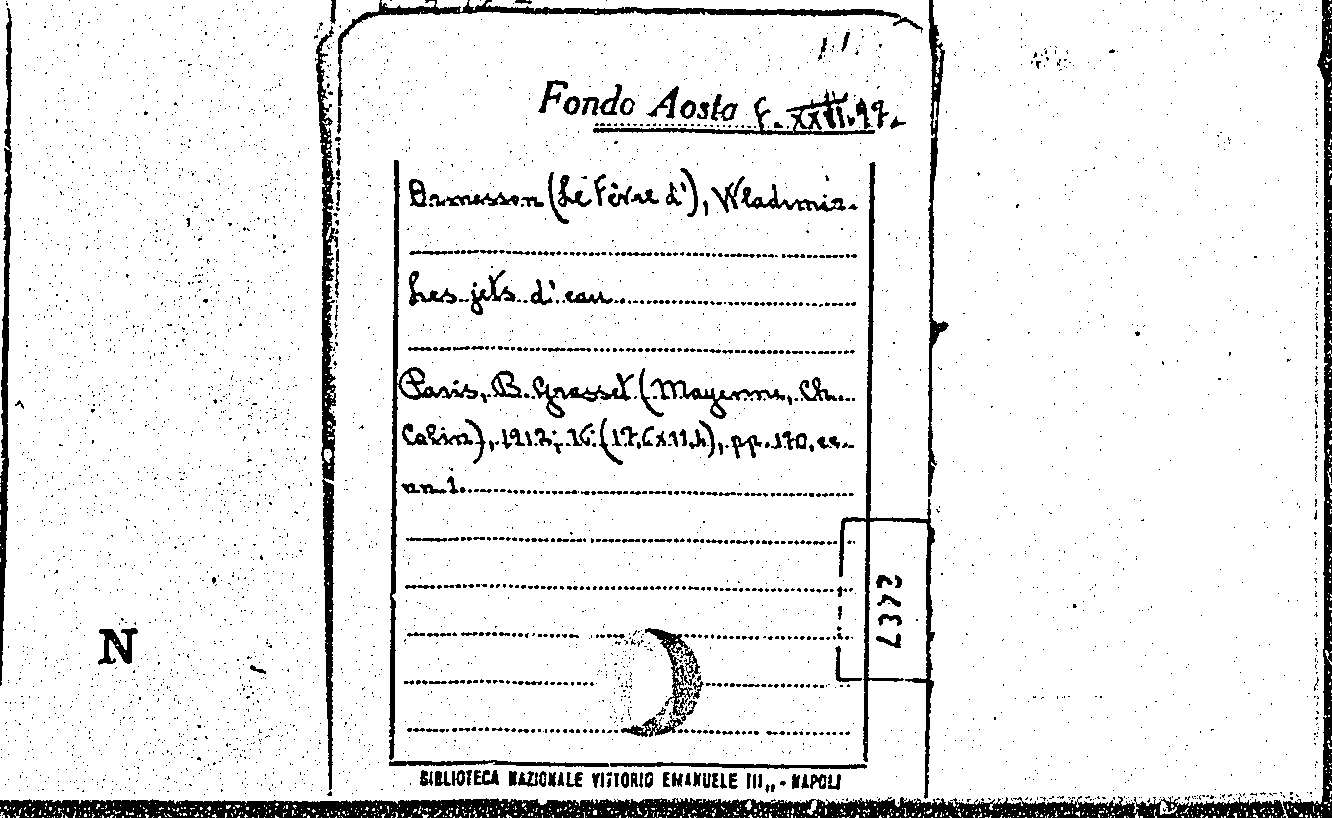 Fondo Aosta F. XXVI. 97.
Ormesson (Le Fèvre d'), Wladimir.
Les jets d'eau.
Paris, B. Grasset (Mayenne, Ch.
Colin), 1912; 16° (17,6x11,4), pp. 170, cc.
nn. 1.
2437
N
BIBLIOTECA NAZIONALE VITTORIO EMANUELE III,, - NAPOLI